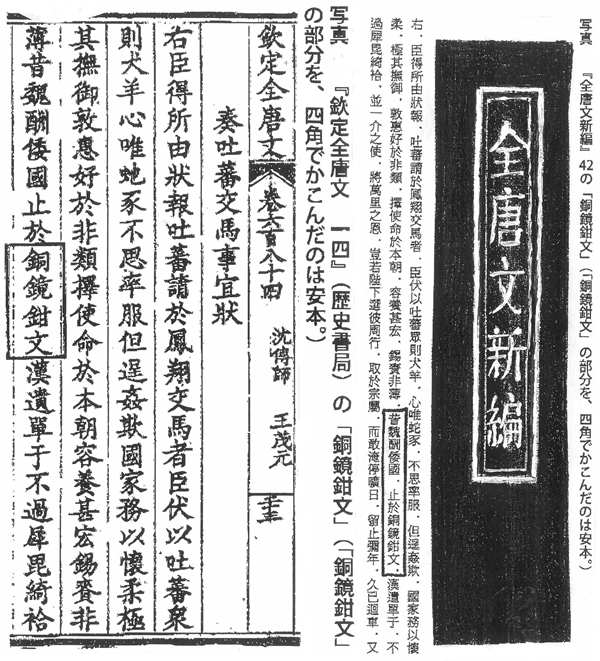 写真　『全唐文新編』42の「銅鏡鉗文」(「銅鏡鉗文」の部分を、四角でかこんだのは安本。)
全唐文新編
右．臣得所由狀報．吐蕃請於鳳翔交馬者．臣伏以吐蕃眾則犬羊．心唯蛇豕．不思率服．但逞姦欺．國家務以懷
柔．極其撫御．敦惠好於非類．擇使命於本朝．容養甚宏．錫賚非薄．昔魏酬倭國．止於銅鏡鉗文．漢遺單于．不
過犀毘綺袷．並一介之使．將萬里之恩．豈若陛下選彼周行．取於宗屬．而敢淹停曠日．留止彌年．久已迴車．又
写真　『欽定全唐文　一四』(歴史書局)の「銅鏡鉗文」(「銅鏡鉗文」
の部分を、四角でかこんだのは安本。)
欽定全唐文 卷六百八十四 沈傳師 王茂元
奏吐蕃交馬事宜狀
右臣得所由狀報吐蕃請於鳳翔交馬者臣伏以吐蕃衆
則犬羊心唯虵豕不思率服但逞姦欺國家務以懷柔極
其撫御敦惠好於非類擇使命於本朝容養甚宏錫賚非
薄昔魏酬倭國止於銅鏡鉗文漢遺單于不過犀毘綺袷